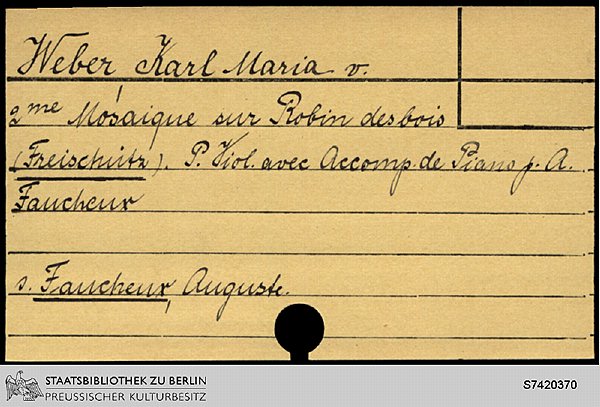 Weber Karl Maria v.
2me Mosaique sur Robin des bois
(Freischütz). P. Viol. avec Accomp. de Piano p. A.
Faucheux
s. Faucheux, Auguste.
STAATSBIBLIOTHEK ZU BERLIN
PREUSSISCHER KULTURBESITZ
S7420370